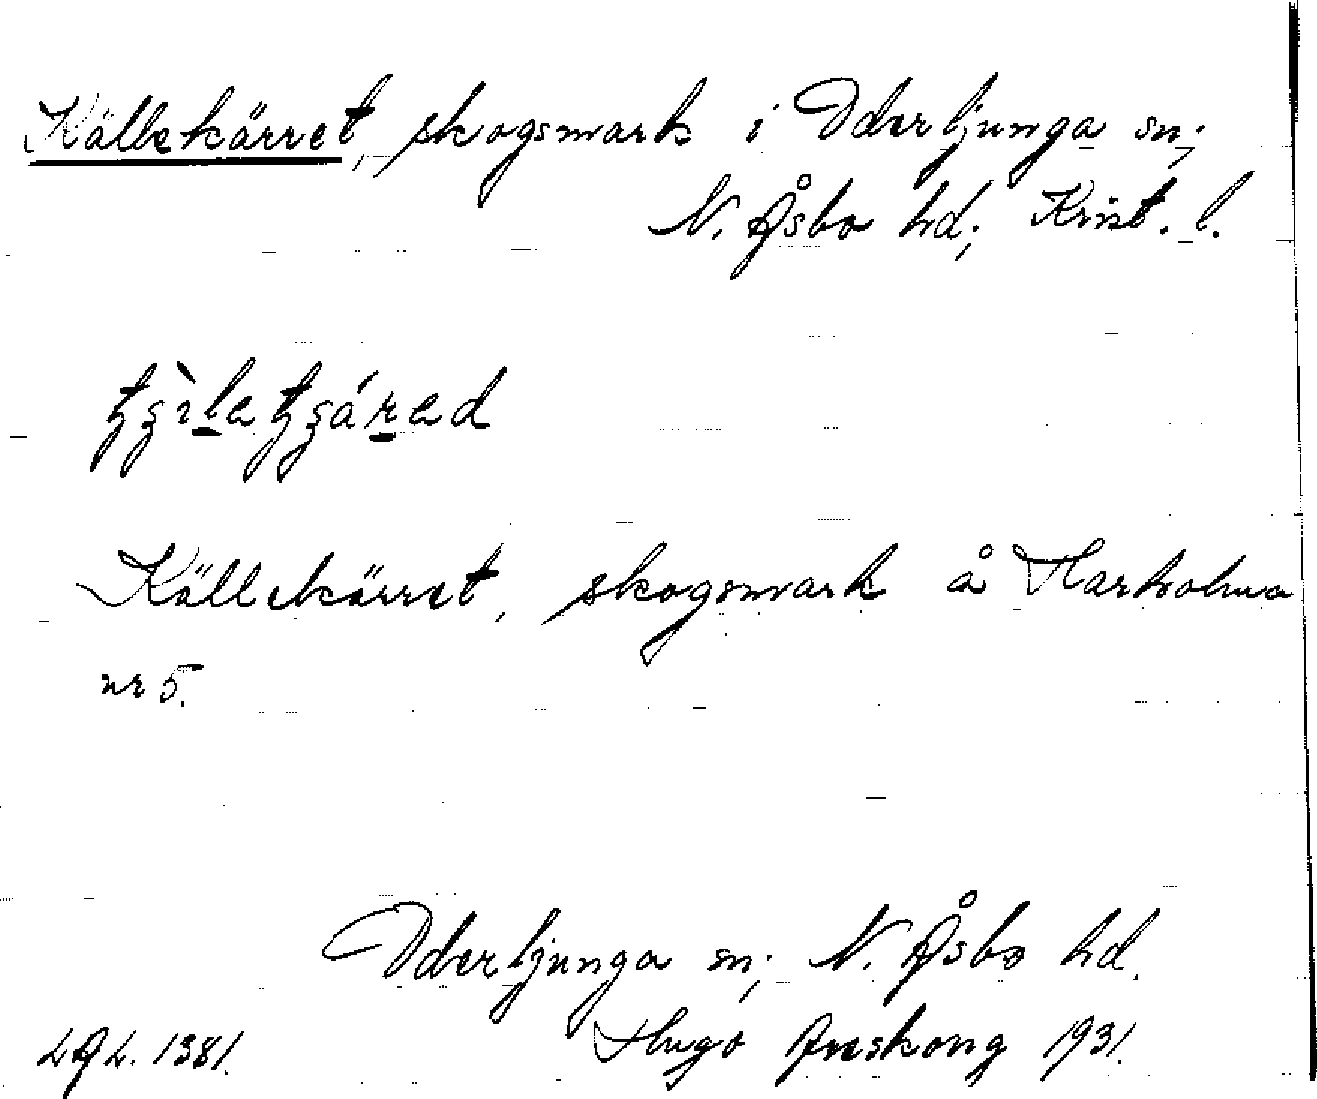 Källekärret, skogsmark i Oderljunga sn;
N. Åsbo hd; Krist. l.
Källekärret, skogsmark å Harholma
nr 5.
Oderljunga sn; N. Åsbo hd.
LAL. 1381. Hugo Areskoug 1931.